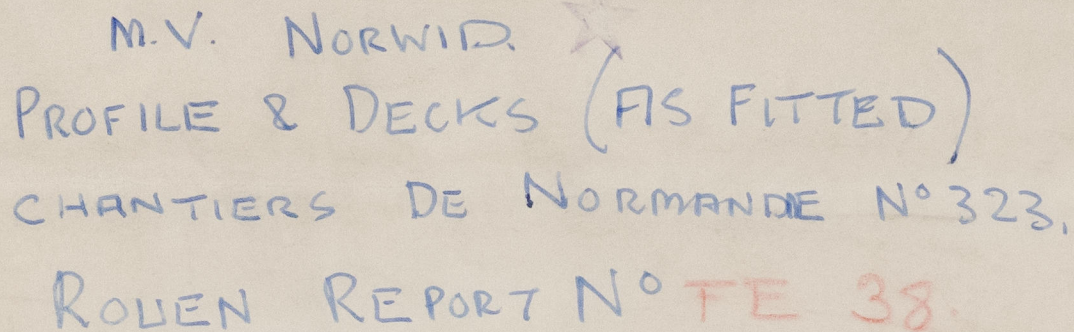 M.V. NORWID.
PROFILE & DECKS (AS FITTED)
CHANTIERS DE NORMANDE Nº 323,
ROUEN REPORT Nº FE 38.